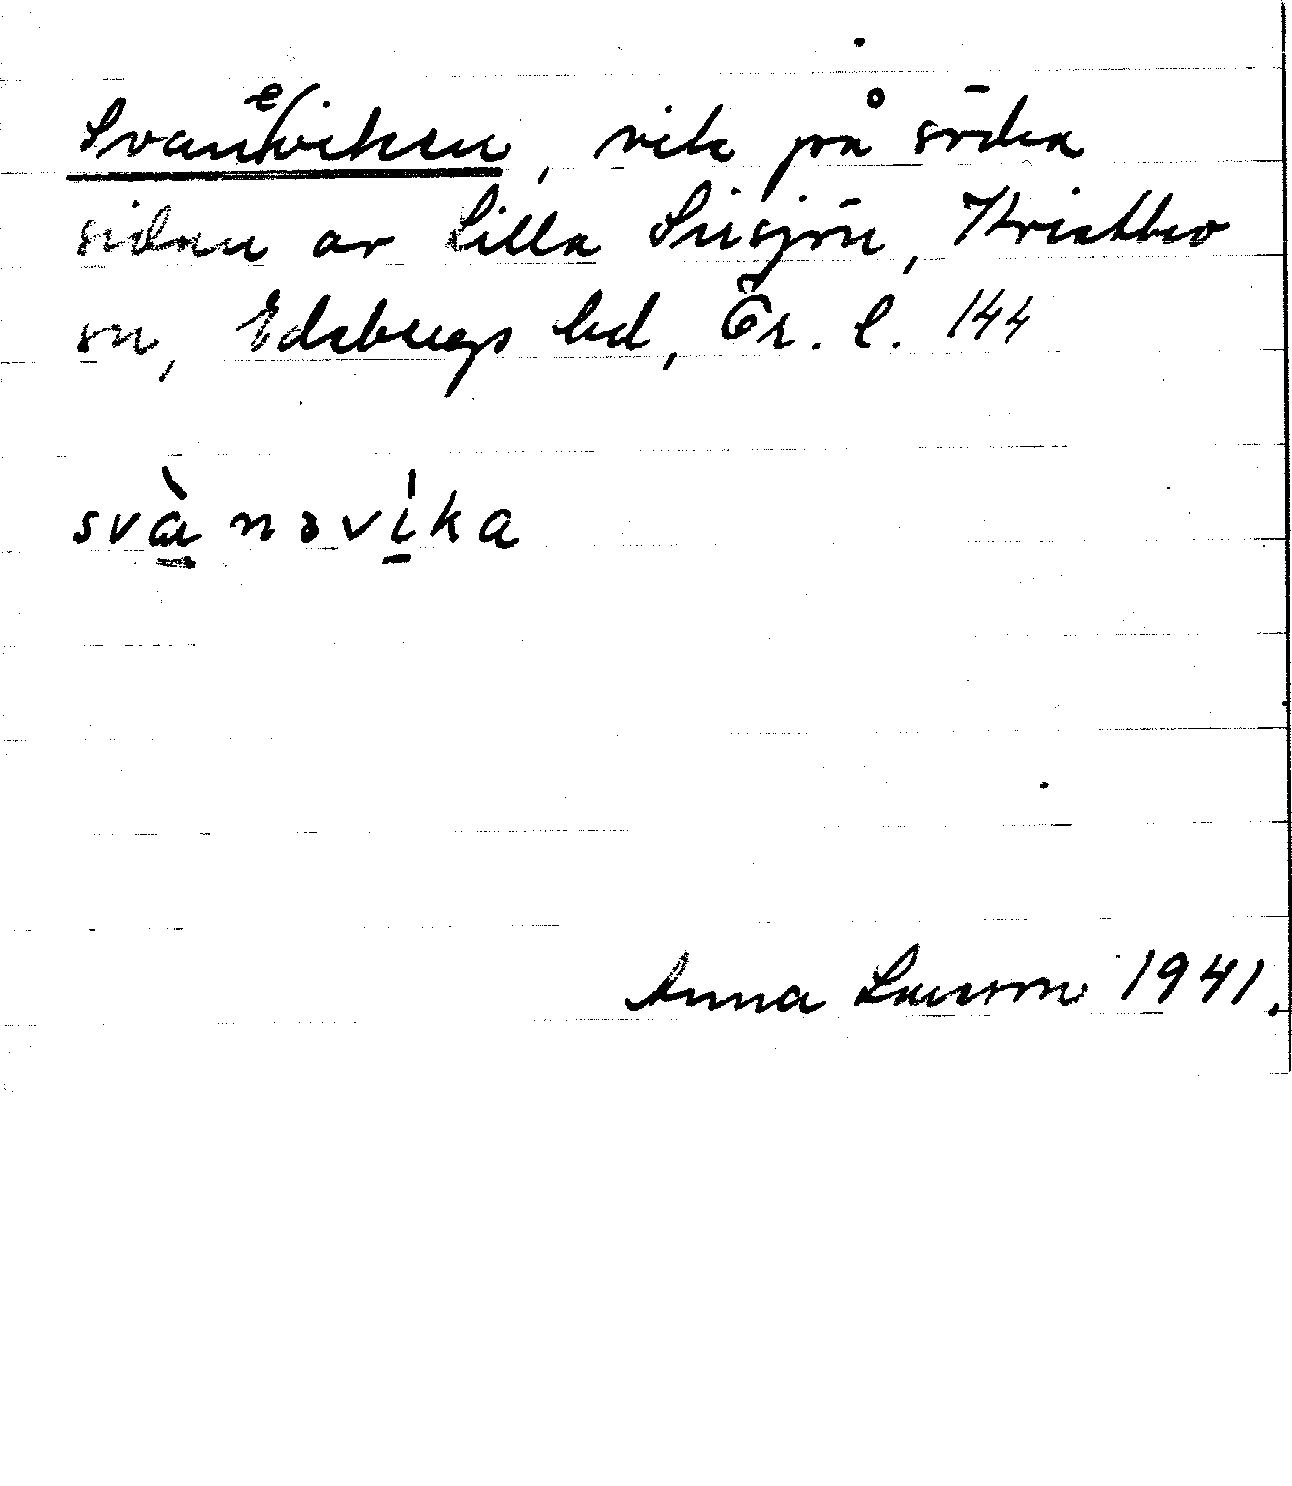 Svaneviken, vik på södra
sidan av Lilla Sisjön, Krektbo
sn, Edsbergs hd, Ör. l. 144
svànəvíka
Anna Larsson 1941.